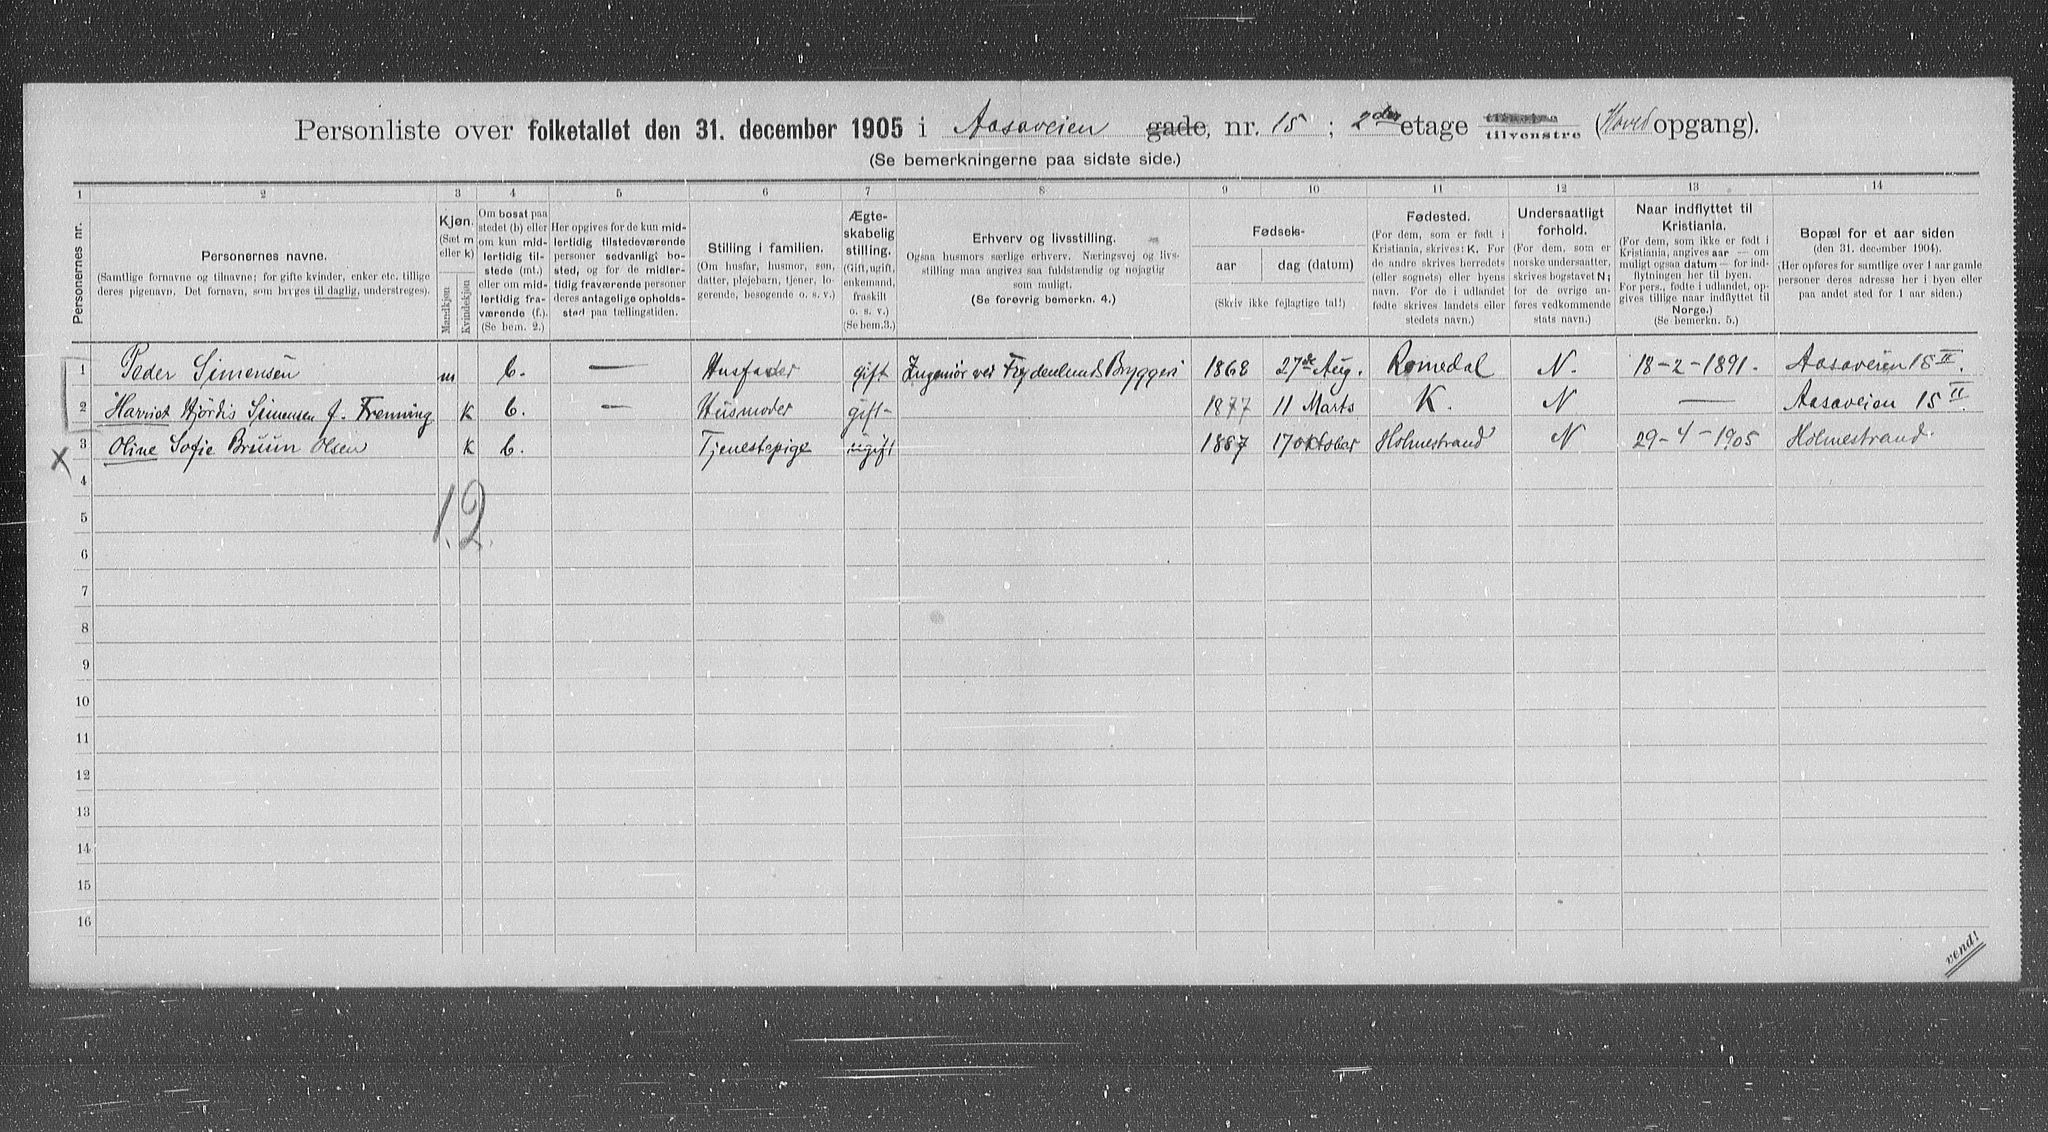 Personliste over folketallet den 31. december 1905 i Aasaveien gade, nr. 15; 2den etage tilvenstre (Hoved opgang).
(Se bemerkningerne paa sidste side.)
1 2 3 4 5 6 7 8 9 10 11 12 13 14
Personernes nr.
Personernes navne.
(Samtlige fornavne og tilnavne; for gifte kvinder, enker etc. tillige
deres pigenavn. Det fornavn, som bruges til daglig, understreges).
Kjøn.
(Sæt m
eller k)
Mandkjøn
Kvindekjøn
Om bosat paa
stedet (b) eller
om kun mid-
lertidig til-
stede (mt.)
eller om mid-
lertidig fra-
værende (f.).
(Se bem. 2.)
Her opgives for de kun mid-
lertidig tilstedeværende
personer sedvanlig bo-
sted, og for de midler-
tidig fraværende personer
deres antagelige opholds-
sted paa tællingstiden.
Stilling i familien.
(Om husfar, husmor, søn,
datter, plejebarn, tjener, lo-
gerende, besøgende o. s. v.)
Ægte-
skabelig
stilling.
(Gift, ugift,
enkemand,
fraskilt
o. s. v.)
(Se bem.3.)
Erhverv og livsstilling.
Ogsaa husmors særlige erhverv. Næringsvej og livs-
stilling maa angives saa fuldstændig og nøjagtig
som muligt.
(Se forøvrig bemerkn. 4.)
Fødsels-
aar
dag (datum)
(Skriv ikke fejlagtige tal!)
Fødested.
(For dem, som er født i
Kristiania, skrives: K. For
de andre skrives herredets
(eller sognets) eller byens
navn. For de i udlandet
fødte skrives landets eller
stedets navn.)
Undersaatligt
forhold.
(For dem, som er
norske undersaatter,
skrives bogstavet N;
for de øvrige an-
føres vedkommende
stats navn.)
Naar indflyttet til
Kristiania.
(For dem, som ikke er født i
Kristiania, angives aar — om
muligt ogsaa datum — for ind-
flytningen her til byen.
For pers., fødte i udlandet, op-
gives tillige naar indflyttet til
Norge.)
(Se bemerkn. 5.)
Bopæl for et aar siden
(den 31. december 1904).
(Her opføres for samtlige over 1 aar gamle
personer deres adresse her i byen eller
paa andet sted for 1 aar siden.)
1 Peder Simensen m b. — Husfader gift Ingeniør ved Frydenlunds Bryggeri 1868 27de Aug. Romedal N. 18-2-1891. Aasaveien 15 II.
2 Harriot Hjördis Simensen f. Frenning k b. — Husmoder gift- 1877 11 Marts K. N — Aasaveien 15 II.
X 3 Oline Sofie Bruun Olsen k b. Tjenestepige ugift 1887 17 oktober Holmestrand N 29-4-1905 Holmestrand.
4
1. 2.
5
6
7
8
9
10
11
12
13
14
15
16
vend!